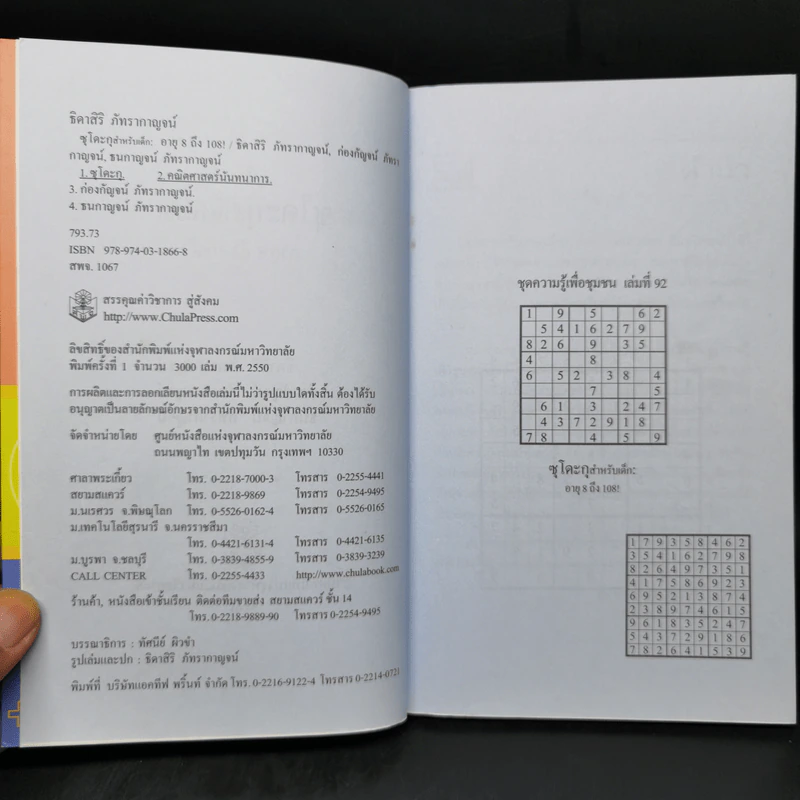 ธิดาสิริ ภัทรากาญจน์
ซูโดะกุสำหรับเด็ก: อายุ 8 ถึง 108! / ธิดาสิริ ภัทรากาญจน์, ก่องกัญจน์ ภัทรา
กาญจน์, ธนกาญจน์ ภัทรากาญจน์
1. ซูโดะกุ. 2. คณิตศาสตร์นันทนาการ.
3. ก่องกัญจน์ ภัทรากาญจน์.
4. ธนกาญจน์ ภัทรากาญจน์
793.73
ISBN 978-974-03-1866-8
สพจ. 1067
สรรคุณค่าวิชาการ สู่สังคม
http://www.ChulaPress.com
ลิขสิทธิ์ของสำนักพิมพ์แห่งจุฬาลงกรณ์มหาวิทยาลัย
พิมพ์ครั้งที่ 1 จำนวน 3000 เล่ม พ.ศ. 2550
การผลิตและการลอกเลียนหนังสือเล่มนี้ไม่ว่ารูปแบบใดทั้งสิ้น ต้องได้รับ
อนุญาตเป็นลายลักษณ์อักษรจากสำนักพิมพ์แห่งจุฬาลงกรณ์มหาวิทยาลัย
จัดจำหน่ายโดย ศูนย์หนังสือแห่งจุฬาลงกรณ์มหาวิทยาลัย
ถนนพญาไท เขตปทุมวัน กรุงเทพฯ 10330
ศาลาพระเกี้ยว โทร. 0-2218-7000-3 โทรสาร 0-2255-4441
สยามสแควร์ โทร. 0-2218-9869 โทรสาร 0-2254-9495
ม.นเรศวร จ.พิษณุโลก โทร. 0-5526-0162-4 โทรสาร 0-5526-0165
ม.เทคโนโลยีสุรนารี จ.นครราชสีมา
โทร. 0-4421-6131-4 โทรสาร 0-4421-6135
ม.บูรพา จ.ชลบุรี โทร. 0-3839-4855-9 โทรสาร 0-3839-3239
CALL CENTER โทร. 0-2255-4433 http://www.chulabook.com
ร้านค้า, หนังสือเข้าชั้นเรียน ติดต่อทีมขายส่ง สยามสแควร์ ชั้น 14
โทร. 0-2218-9889-90 โทรสาร 0-2254-9495
บรรณาธิการ : ทัศนีย์ ผิวขำ
รูปเล่มและปก : ธิดาสิริ ภัทรากาญจน์
พิมพ์ที่ บริษัทแอคทีฟ พริ้นท์ จำกัด โทร. 0-2216-9122-4 โทรสาร 0-2214-0721
ชุดความรู้เพื่อชุมชน เล่มที่ 92
1 9 5 6 2
5 4 1 6 2 7 9
8 2 6 9 3 5
4 8
6 5 2 3 8 4
7 5
6 1 3 2 4 7
4 3 7 2 9 1 8
7 8 4 5 9
ซูโดะกุสำหรับเด็ก:
อายุ 8 ถึง 108!
1 7 9 3 5 8 4 6 2
3 5 4 1 6 2 7 9 8
8 2 6 4 9 7 3 5 1
4 1 7 5 8 6 9 2 3
6 9 5 2 1 3 8 7 4
2 3 8 9 7 4 6 1 5
9 6 1 8 3 5 2 4 7
5 4 3 7 2 9 1 8 6
7 8 2 6 4 1 5 3 9